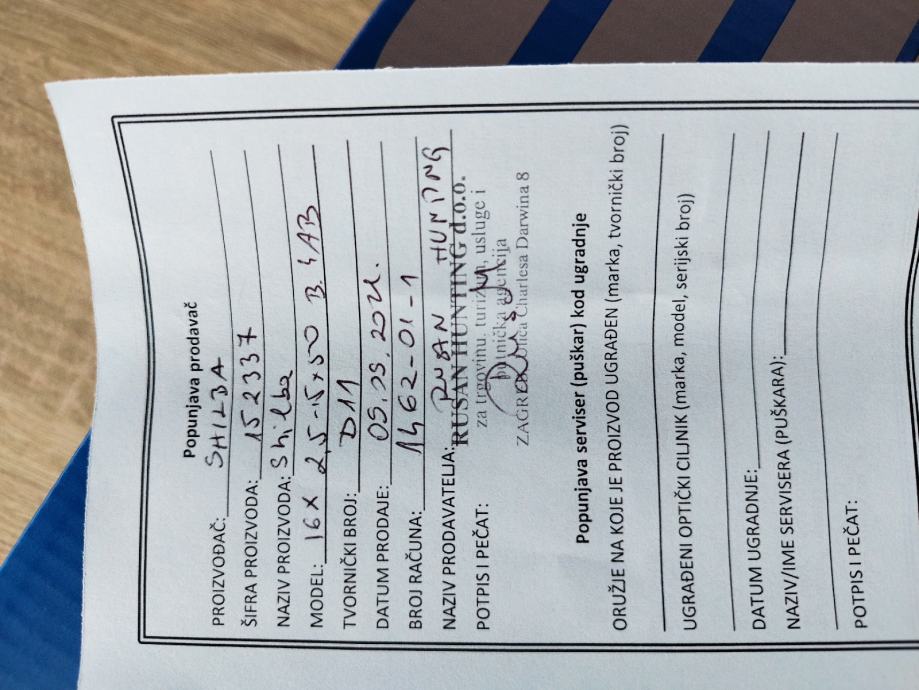 Popunjava prodavač
PROIZVOĐAČ: SHILBA
ŠIFRA PROIZVODA: 152337
NAZIV PROIZVODA: Shilba
MODEL: 16X 2,5-15x50 B. 4AB
TVORNIČKI BROJ: D11
DATUM PRODAJE: 05.09.2024.
BROJ RAČUNA: 1462-01-1
NAZIV PRODAVATELJA: RUSAN HUNTING
RUSAN HUNTING d.o.o.
za trgovinu, turizam, usluge i
POTPIS I PEČAT: putnička agencija
ZAGREB, Ulica Charlesa Darwina 8
Popunjava serviser (puškar) kod ugradnje
ORUŽJE NA KOJE JE PROIZVOD UGRAĐEN (marka, tvornički broj)
UGRAĐENI OPTIČKI CILJNIK (marka, model, serijski broj)
DATUM UGRADNJE:
NAZIV/IME SERVISERA (PUŠKARA):
POTPIS I PEČAT: